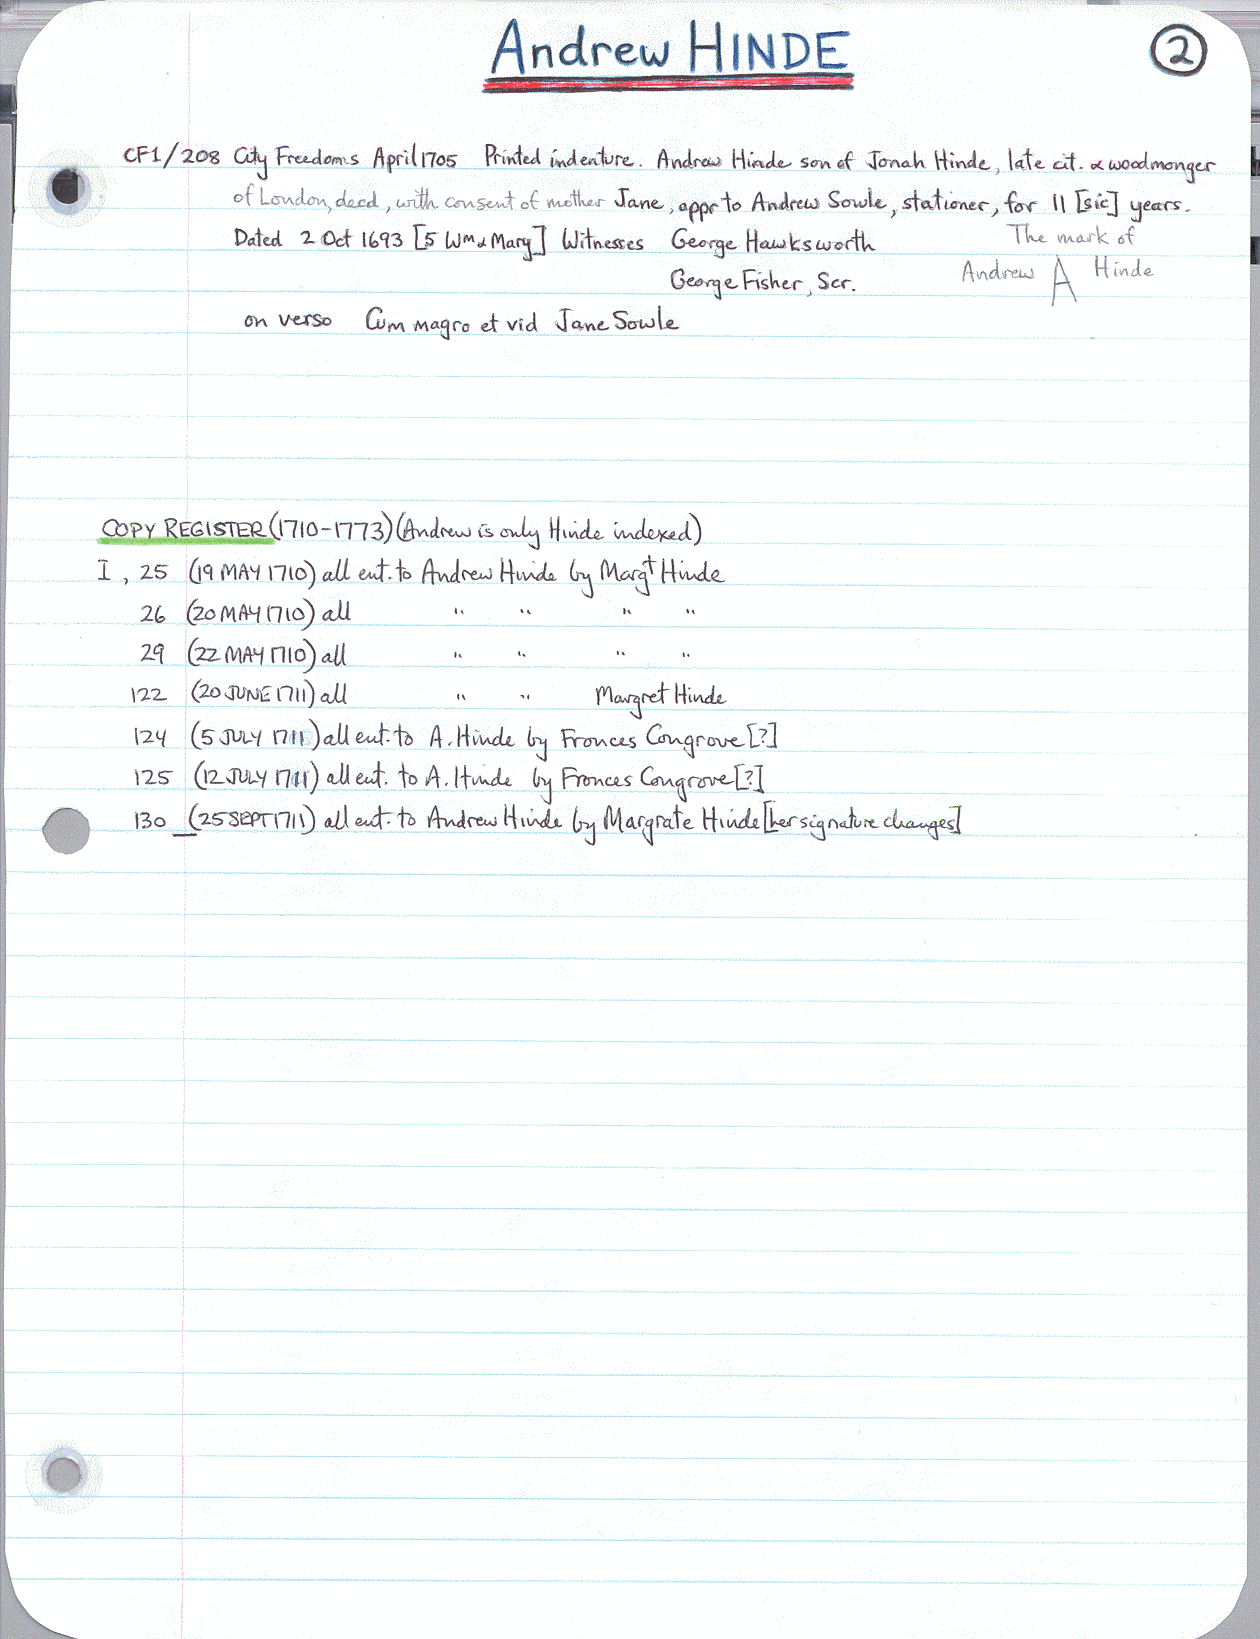 Andrew HINDE
2
CF1/208 City Freedoms April 1705 Printed indenture. Andrew Hinde son of Jonah Hinde, late cit. & woodmonger
of London, decd, with consent of mother Jane, appr to Andrew Sowle, stationer, for 11 [sic] years.
Dated 2 Oct 1693 [5 Wm & Mary] Witnesses George Hawksworth The mark of
George Fisher, Scr. Andrew A Hinde
on verso Cum magro et vid Jane Sowle
COPY REGISTER (1710-1773) (Andrew is only Hinde indexed)
I, 25 (19 MAY 1710) all ent. to Andrew Hinde by Margt Hinde
26 (20 MAY 1710) all " " " "
29 (22 MAY 1710) all " " " "
122 (20 JUNE 1711) all " " Margret Hinde
124 (5 JULY 1711) all ent. to A. Hinde by Fronces Congrove [?]
125 (12 JULY 1711) all ent. to A. Hinde by Fronces Congrove [?]
130 (25 SEPT 1711) all ent. to Andrew Hinde by Margrate Hinde [her signature changes]